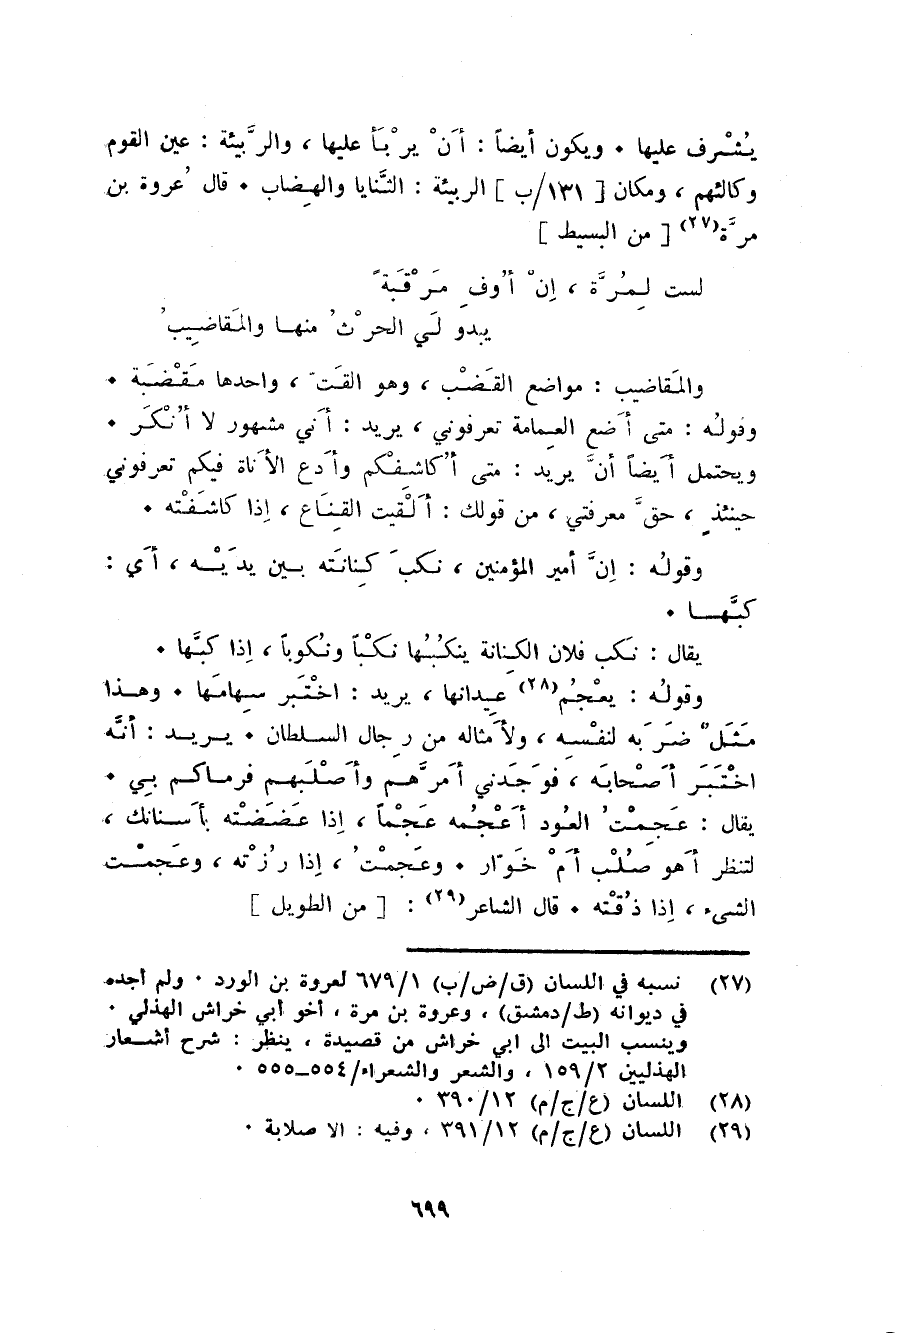 يُشْرف عليها ٠ ويكون أيضاً : أَنْ يرْبَأ عليها ، والرَّبيئة : عين القوم
وكالئهم ، ومكان [ ١٣١/ب ] الربيئة : الثَّنايا والهِضاب ٠ قال عُروة بن
مرَّة(٢٧) [ من البسيط ]
لست لِمُرَّة ، إِنْ أُوفِ مَرْقَبَةً
يبدو لَي الحرْثُ منها والمَقاضِيبُ
والمَقاضيب : مواضع القَضْب ، وهو القَتّ ، واحدها مَقْضَبَة ٠
وقولُه : متى أَضع العِمامة تعرفوني ، يريد : أَني مشهور لا أُنْكَر ٠
ويحتمل أَيضاً أنَّ يريد : متى أُكاشِفْكم وأَدع الأَناة فيكم تعرفوني
حينئذٍ ، حقَّ معرفتي ، من قولك : أَلْقيت القِنَاع ، إِذا كاشَفْته ٠
وقولُه : إِنَّ أمير المؤمنين ، نكبَ كِنانَته بين يدَيْه ، أَي :
كبَّها ٠
يقال : نَكب فلان الكِنانة ينكُبُها نَكْباً ونُكوباً ، إِذا كبَّها ٠
وقولُه : يعْجُم(٢٨) عِيدانها ، يريد : اخْتَبر سِهامَها ٠ وهذا
مَثَلٌ ضرَبه لنفْسِه ، ولأَمثاله من رِجال السلطان ٠ يريد : أَنَّه
اخْتَبَر أَصْحابَه ، فوَجَدني أَمرَّهم وأَصْلَبهم فرماكم بي ٠
يقال : عَجمْتُ العُود أَعْجُمه عَجْماً ، إِذا عَضضْته بأَسنانك ،
لتنظر أَهو صُلْب أَمْ خَوّار ٠ وعَجمتُ ، إِذا رُزْته ، وعَجمْت
الشيء ، إِذا ذُقْته ٠ قال الشاعر(٢٩) : [ من الطويل ]
(٢٧) نسبه في اللسان (ق/ض/ب) ٦٧٩/١ لعروة بن الورد ٠ ولم أجده
في ديوانه (ط/دمشق) ، وعروة بن مرة ، أخو أبي خراش الهذلي ٠
وينسب البيت الى ابي خراش من قصيدة ، ينظر : شرح أشعار
الهذليين ١٥٩/٢ ، والشعر والشعراء/٥٥٤_٥٥٥ ٠
(٢٨) اللسان (ع/ج/م) ٣٩٠/١٢ ٠
(٢٩) اللسان (ع/ج/م) ٣٩١/١٢ ، وفيه : الا صلابة ٠
٦٩٩